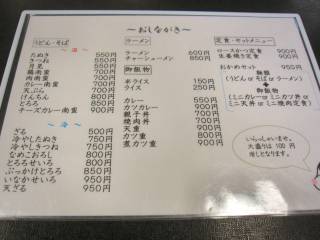 〜おしながき〜
うどん・そば
〜温〜
たぬき 550円
きつね 550円
月見 550円
鶏南蛮 700円
肉南蛮 700円
カレー南蛮 700円
天ぷら 700円
けんちん 800円
とろろ 850円
チーズカレー南蛮 850円
〜冷〜
ざる 500円
冷やしたぬき 750円
冷やしきつね 750円
なめこおろし 800円
とろろせいろ 850円
ぶっかけとろろ 850円
いなかせいろ 950円
天ざる 950円
ラーメン
ラーメン 600円
チャーシューメン 850円
御飯物
半ライス 150円
ライス 250円
カレー 550円
カツカレー 900円
親子丼 700円
焼肉丼 700円
天重 900円
カツ重 900円
煮カツ重 900円
定食・セットメニュー
ロースかつ定食 900円
生姜焼き定食 900円
おかめセット 950円
麺類
(うどん or そば or ラーメン)
+
御飯物
(ミニカレー or ミニカツ丼 or
ミニ天丼 or ミニ焼肉丼)
いらっしゃいませ。
大盛りは 100 円
増しとなります。